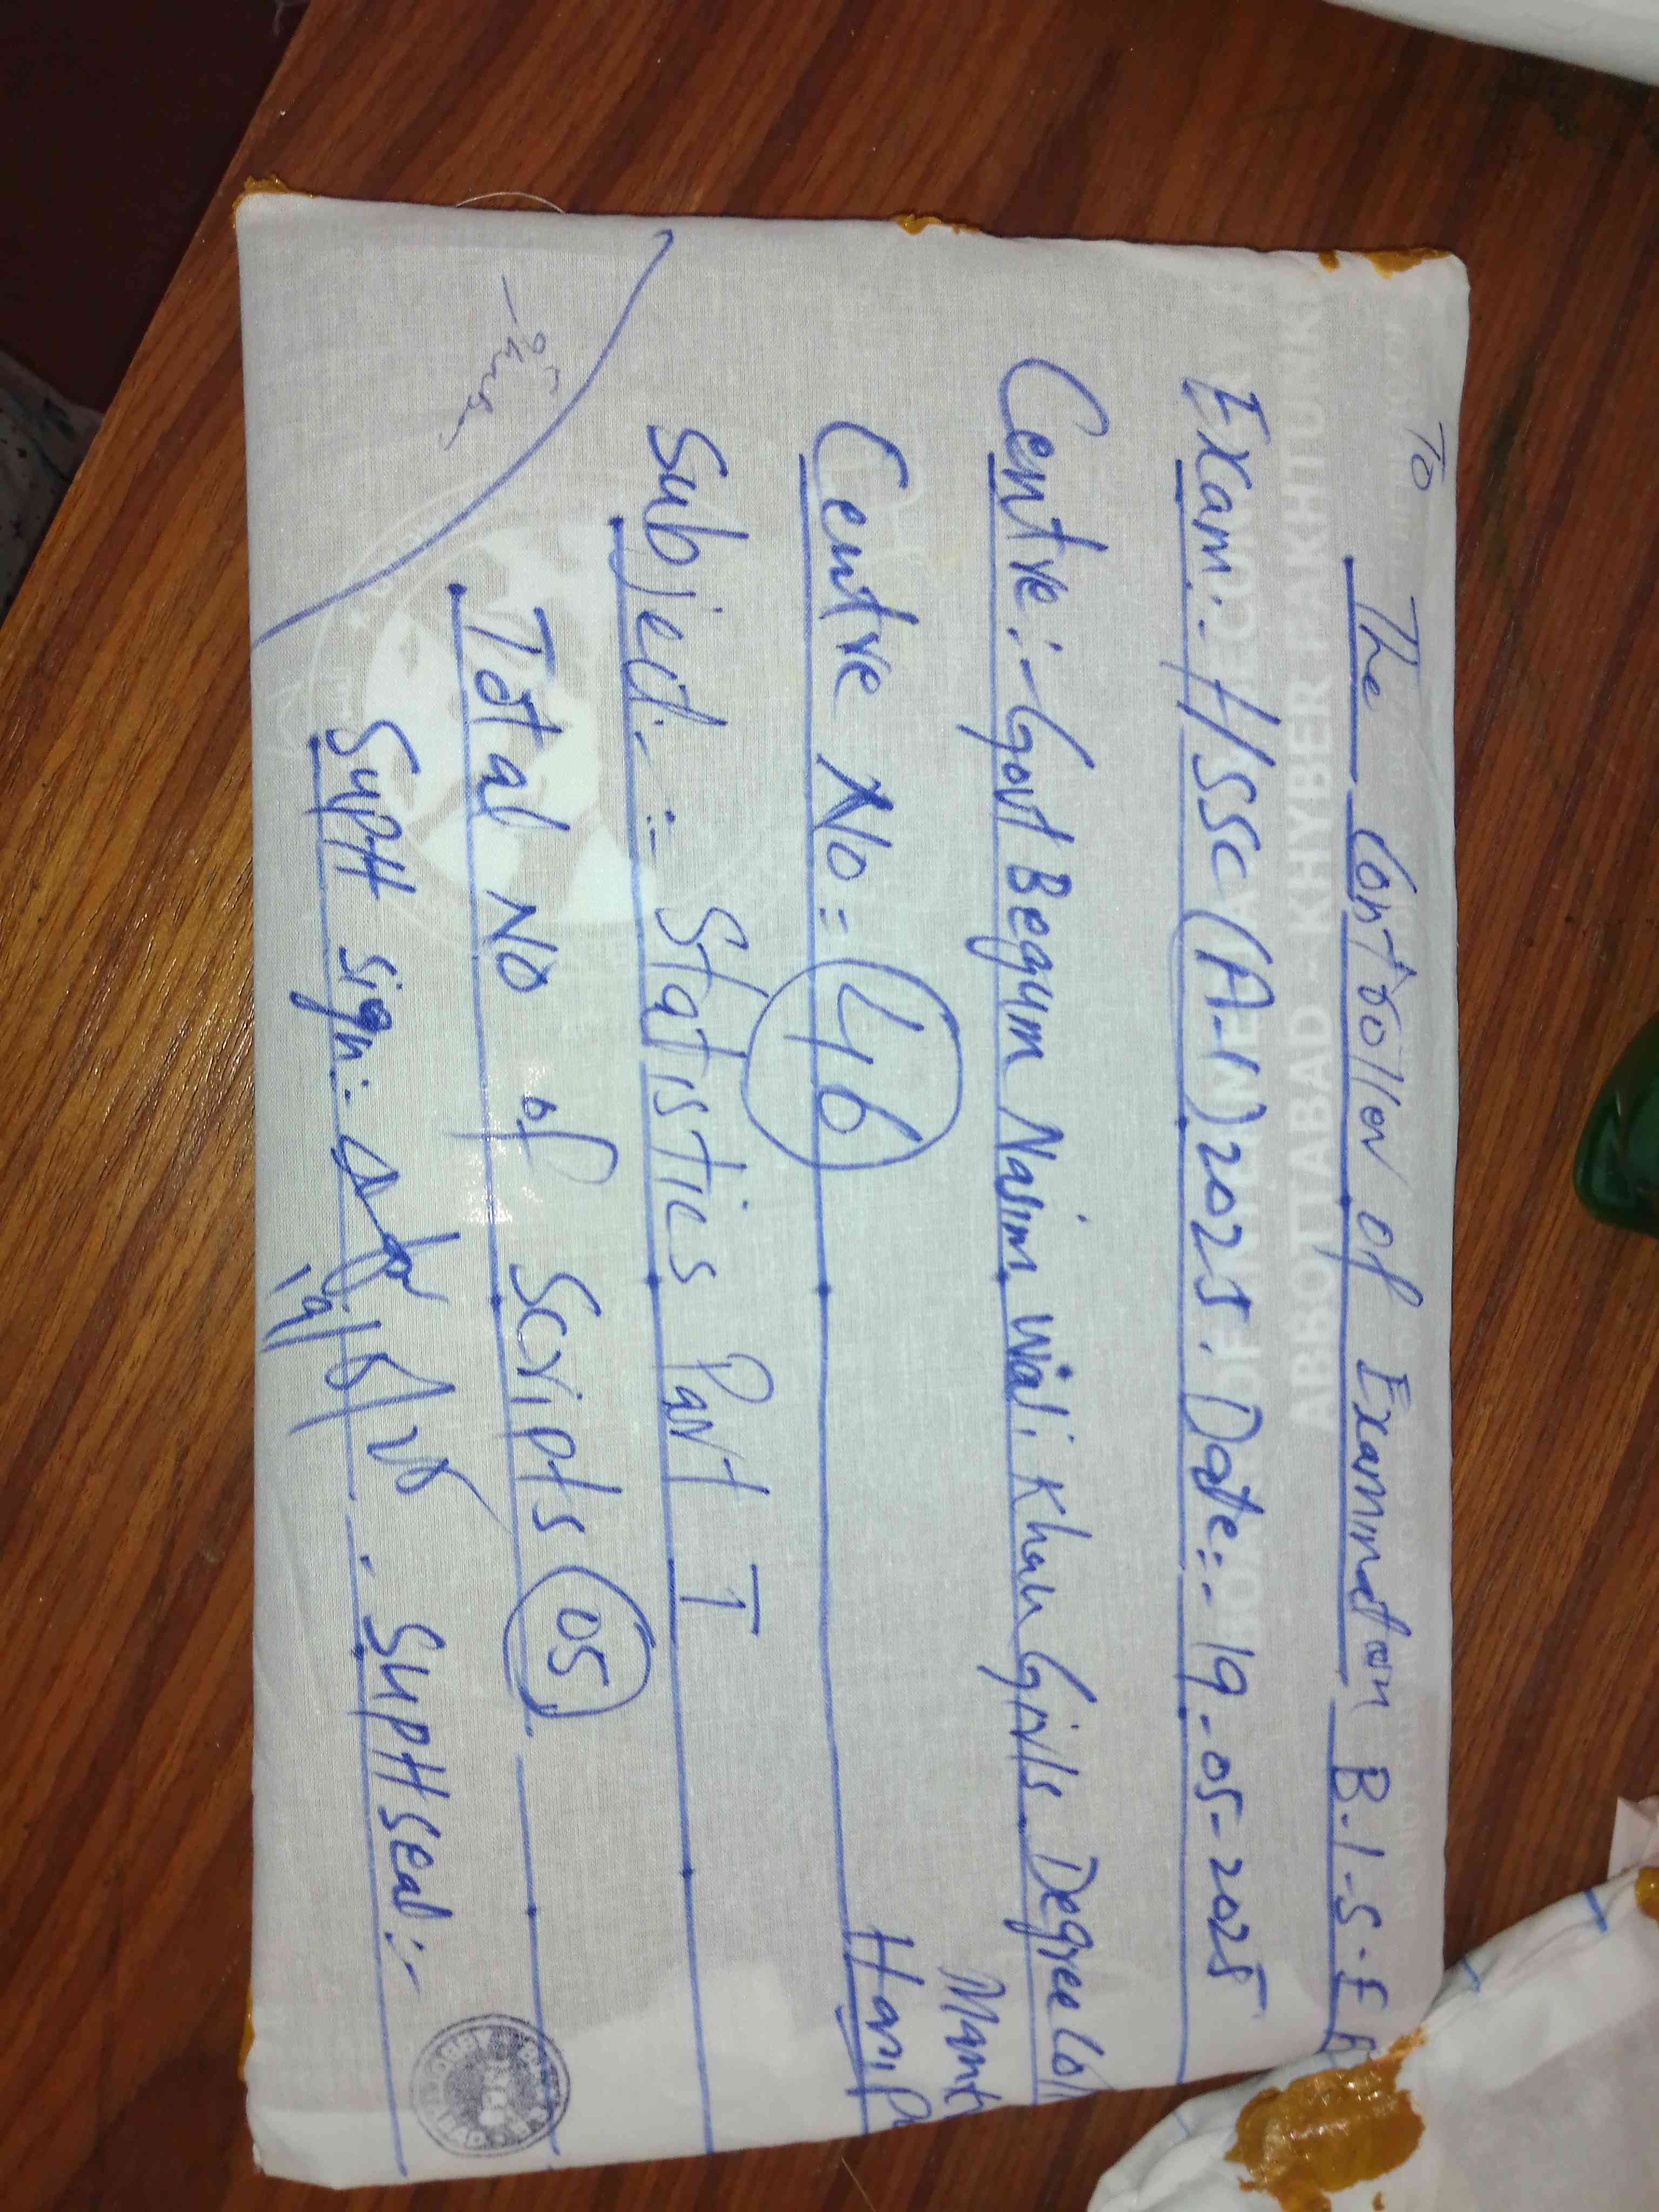 To
The Controller of Examination B.I.S.E A
Exam:- HSSC (A-I) 2025. Date:- 19-05-2025
Centre:- Govt Begum Nasim Wali Khan Girls Degree Col
Centre No:- 46
Harip
Subject:- Statistics Part I
Total No of Scripts 05
Supt sign:- 19/5/25. Supt seal:-
ABBOTTABAD - KHYBER PAKHTUNK